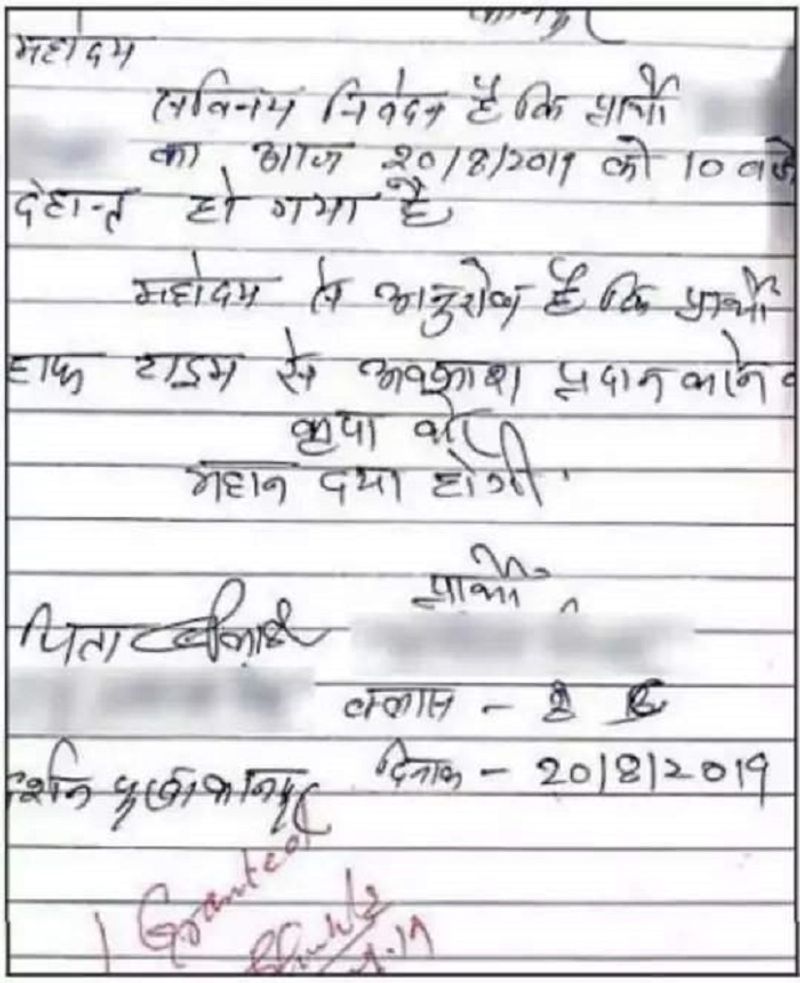 महोदय
सविनय निवेदन है कि प्रार्थी
का आज 20/8/2019 को 10 बजे
देहान्त हो गया है
महोदय से अनुरोध है कि प्रार्थी
हाफ टाइम से अवकाश प्रदान करने
कृपा करें
महान दया होगी
प्रार्थी
पिता
क्लास - 8
दिनाक - 20/8/2019
Granted